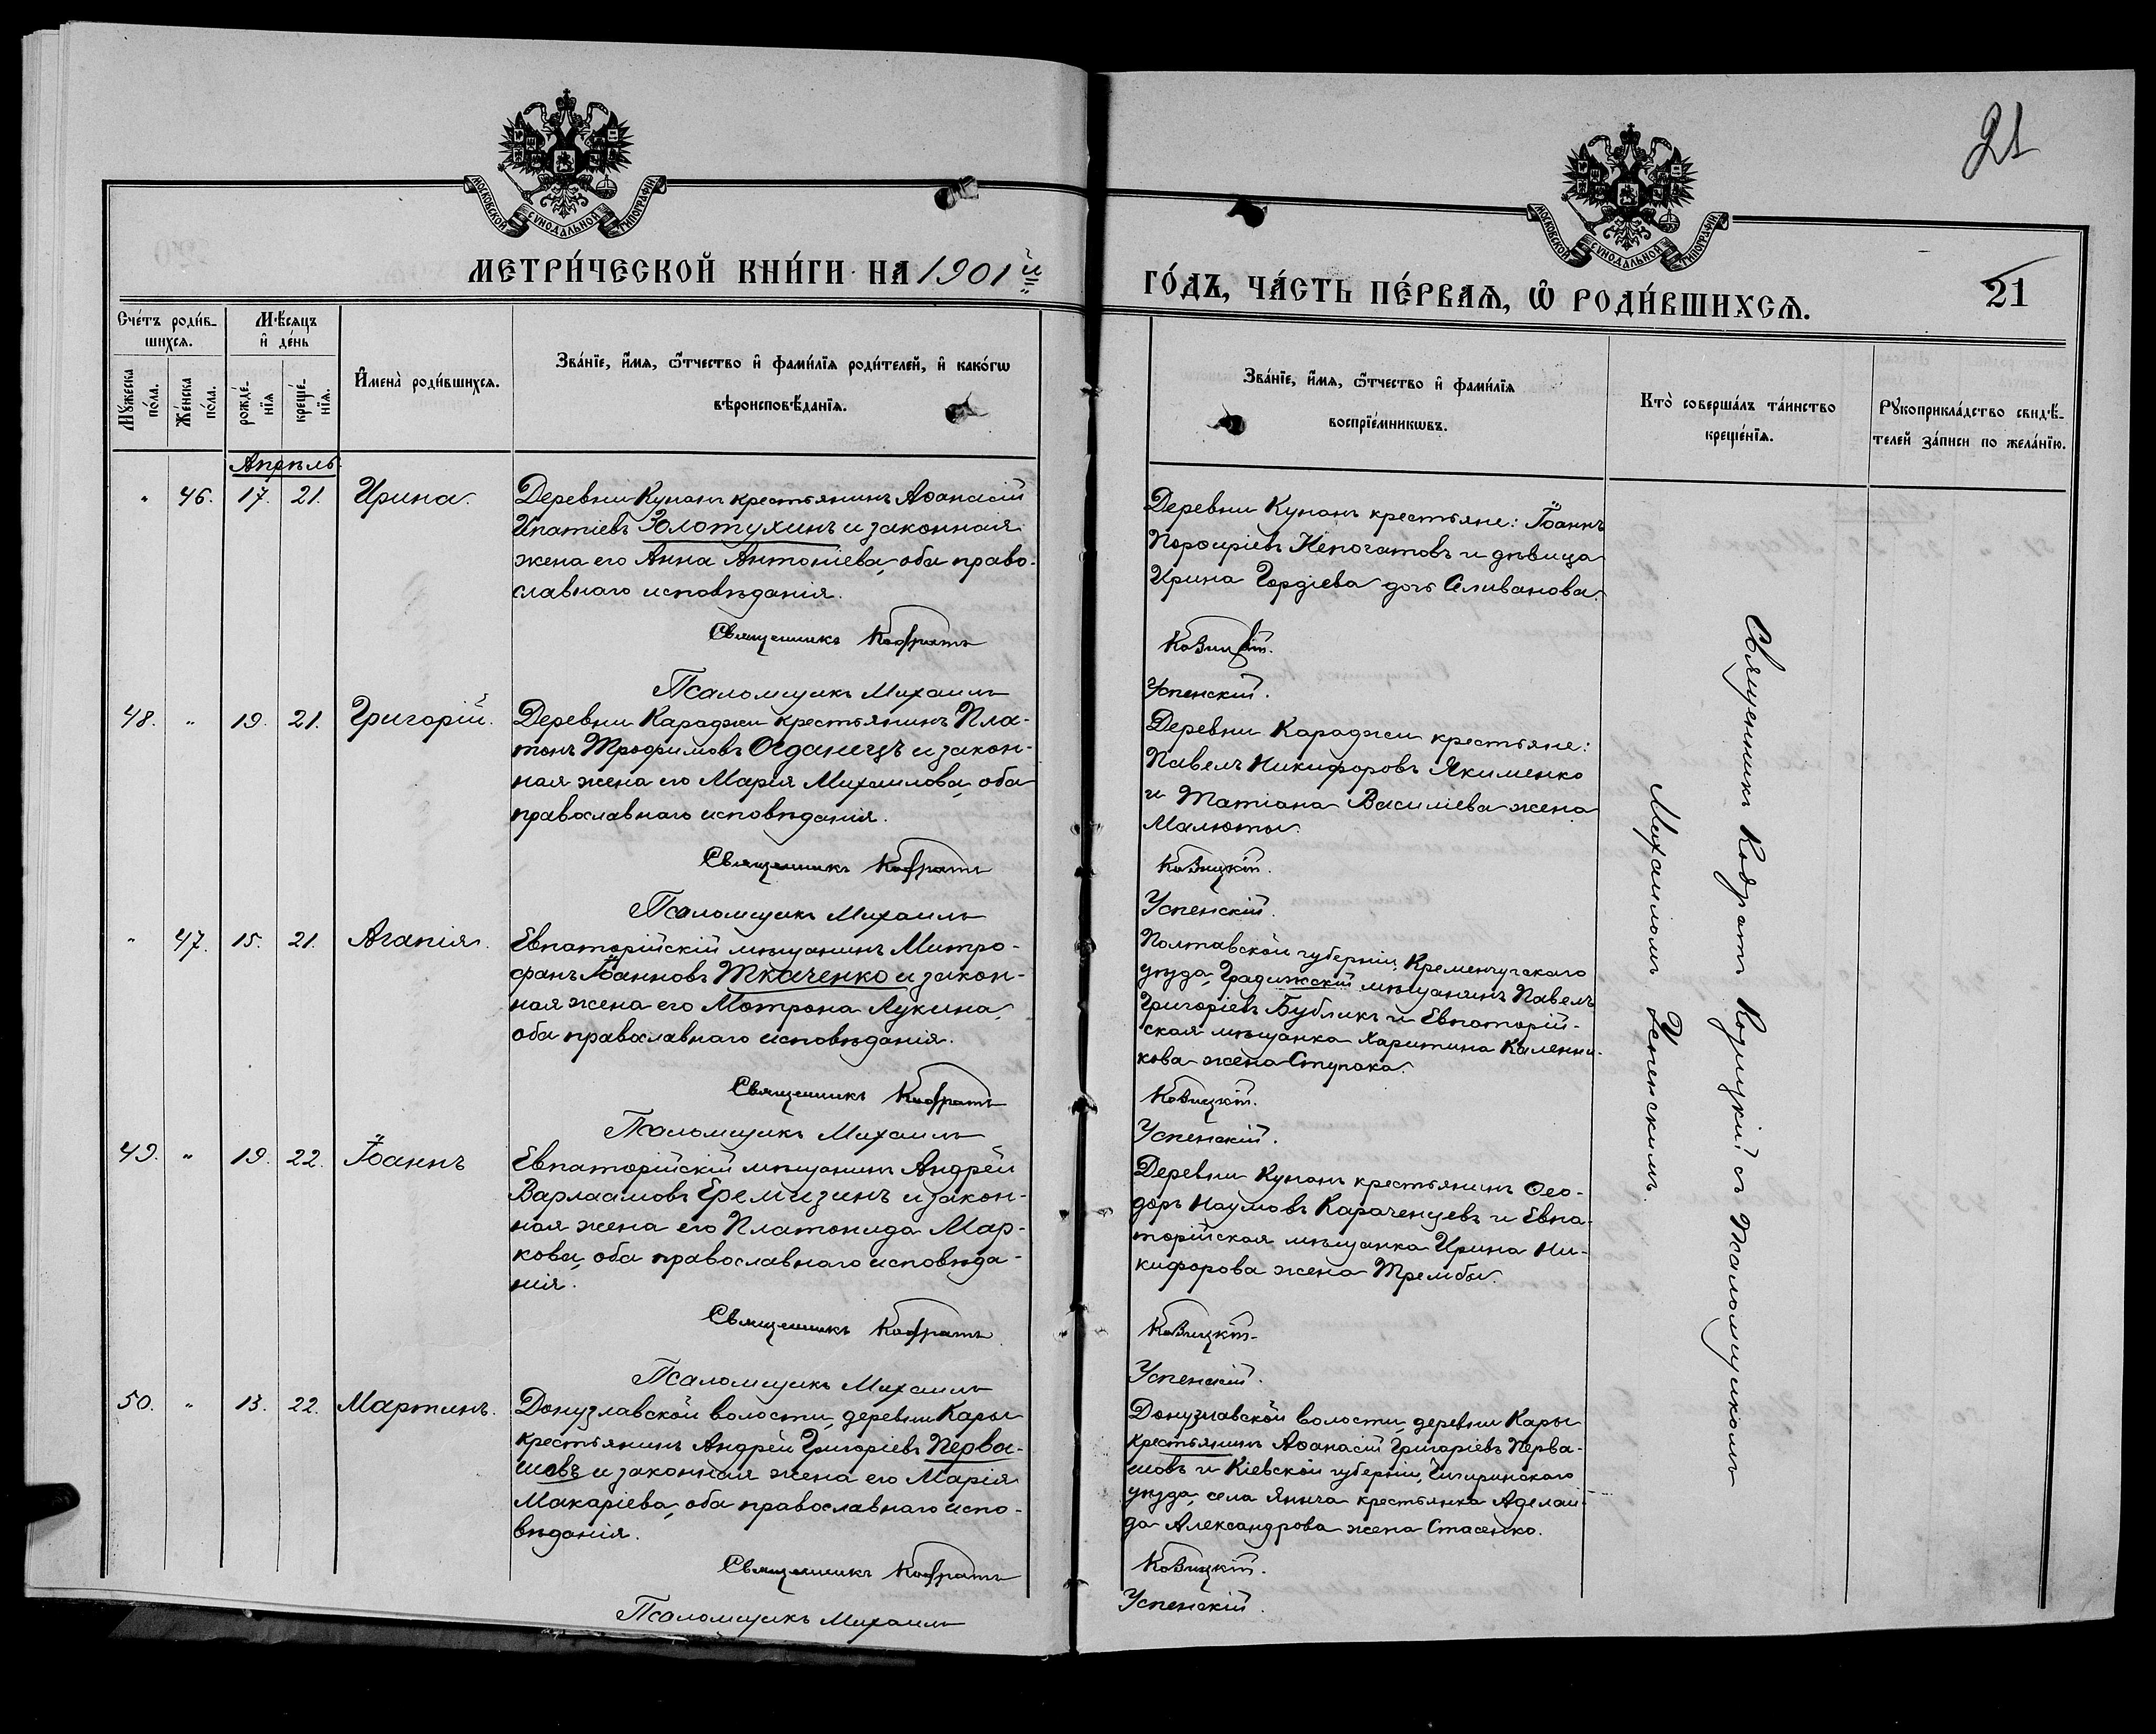 21
МОСКОВСКОЙ СѴНОДАЛЬНОЙ ТИПОГРАФІИ
МОСКОВСКОЙ СѴНОДАЛЬНОЙ ТИПОГРАФІИ
МЕТРИ́ЧЕСКОЙ КНИ́ГИ НА 1901й
ГО́ДЪ, ЧА́СТЬ ПЕ́РВАѦ, Ѡ҆ РОДИ́ВШИХСѦ.
21
Сче́тъ роди́в-
шихсѧ.
Мѣ́сѧцъ
и҆ де́нь
Мꙋ́жеска
по́ла.
Же́нска
по́ла.
рожде́-
нїѧ
креще́-
нїѧ.
И҆мена̀ роди́вшихсѧ.
Зва́нїе, и҆́мѧ, ѻ҆́тчество и҆ фами́лїѧ роди́телей, и҆ како́гѡ
вѣроисповѣ́данїѧ.
Зва́нїе, и҆́мѧ, ѻ҆́тчество и҆ фами́лїѧ
воспрїе́мникѡвъ.
Кто̀ соверша́лъ та́инство
креще́нїѧ.
Рꙋкоприкла́дство свидѣ́-
телей за́писи по жела́нїю.
Апрѣль
" 46. 17. 21. Ирина.
Деревни Кунанъ крестьянинъ Аѳанасій
Ипатіевъ Золотухинъ и законная
жена его Анна Антоніева, оба право-
славнаго исповѣданія.
Священникъ Кодратъ
Псаломщикъ Михаилъ
Деревни Кунанъ крестьяне: Іоаннъ
Порфиріевъ Непочатовъ и дѣвица
Ирина Гордіева дочь Селиванова.
Козицкій.
Успенскій.
48. " 19. 21. Григорій.
Деревни Караджи крестьянинъ Пла-
тонъ Трофимовъ Огданецъ и закон-
ная жена его Марія Михаилова, оба
православнаго исповѣданія.
Священникъ Кодратъ
Псаломщикъ Михаилъ
Деревни Караджи крестьяне:
Павелъ Никифоровъ Якименко
и Татіана Василіева жена
Малюты.
Козицкій.
Успенскій.
" 47. 15. 21. Агапія.
Евпаторійскій мѣщанинъ Митро-
фанъ Іоанновъ Ткаченко и закон-
ная жена его Мотрона Лукина,
оба православнаго исповѣданія.
Священникъ Кодратъ
Псаломщикъ Михаилъ
Полтавской губерніи, Кременчугскаго
уѣзда, Градижскій мѣщанинъ Павелъ
Григоріевъ Бубликъ и Евпаторій-
ская мѣщанка Харитина Каленни-
кова жена Ступака.
Козицкій.
Успенскій.
49. " 19. 22. Іоаннъ
Евпаторійскій мѣщанинъ Андрей
Варлаамовъ Еремизинъ и закон-
ная жена его Платонида Мар-
кова, оба православнаго исповѣда-
нія.
Священникъ Кодратъ
Псаломщикъ Михаилъ
Деревни Кунанъ крестьянинъ Ѳео-
доръ Наумовъ Караченцевъ и Евпа-
торійская мѣщанка Ирина Ни-
кифорова жена Трембы.
Козицкій.
Успенскій.
50. " 13. 22. Мартинъ.
Донузлавской волости, деревни Кары
крестьянинъ Андрей Григоріевъ Перва-
шовъ и законная жена его Марія
Макаріева, оба православнаго испо-
вѣданія.
Священникъ Кодратъ
Псаломщикъ Михаилъ
Донузлавской волости, деревни Кары
крестьянинъ Аѳанасій Григоріевъ Перва-
шовъ и Кіевской губерніи, Чигиринскаго
уѣзда, села Яныча крестьянка Аделаи-
да Александрова жена Стасенко.
Козицкій.
Успенскій.
Священникъ Кодратъ Козицкій съ псаломщикомъ
Михаиломъ Успенскимъ.